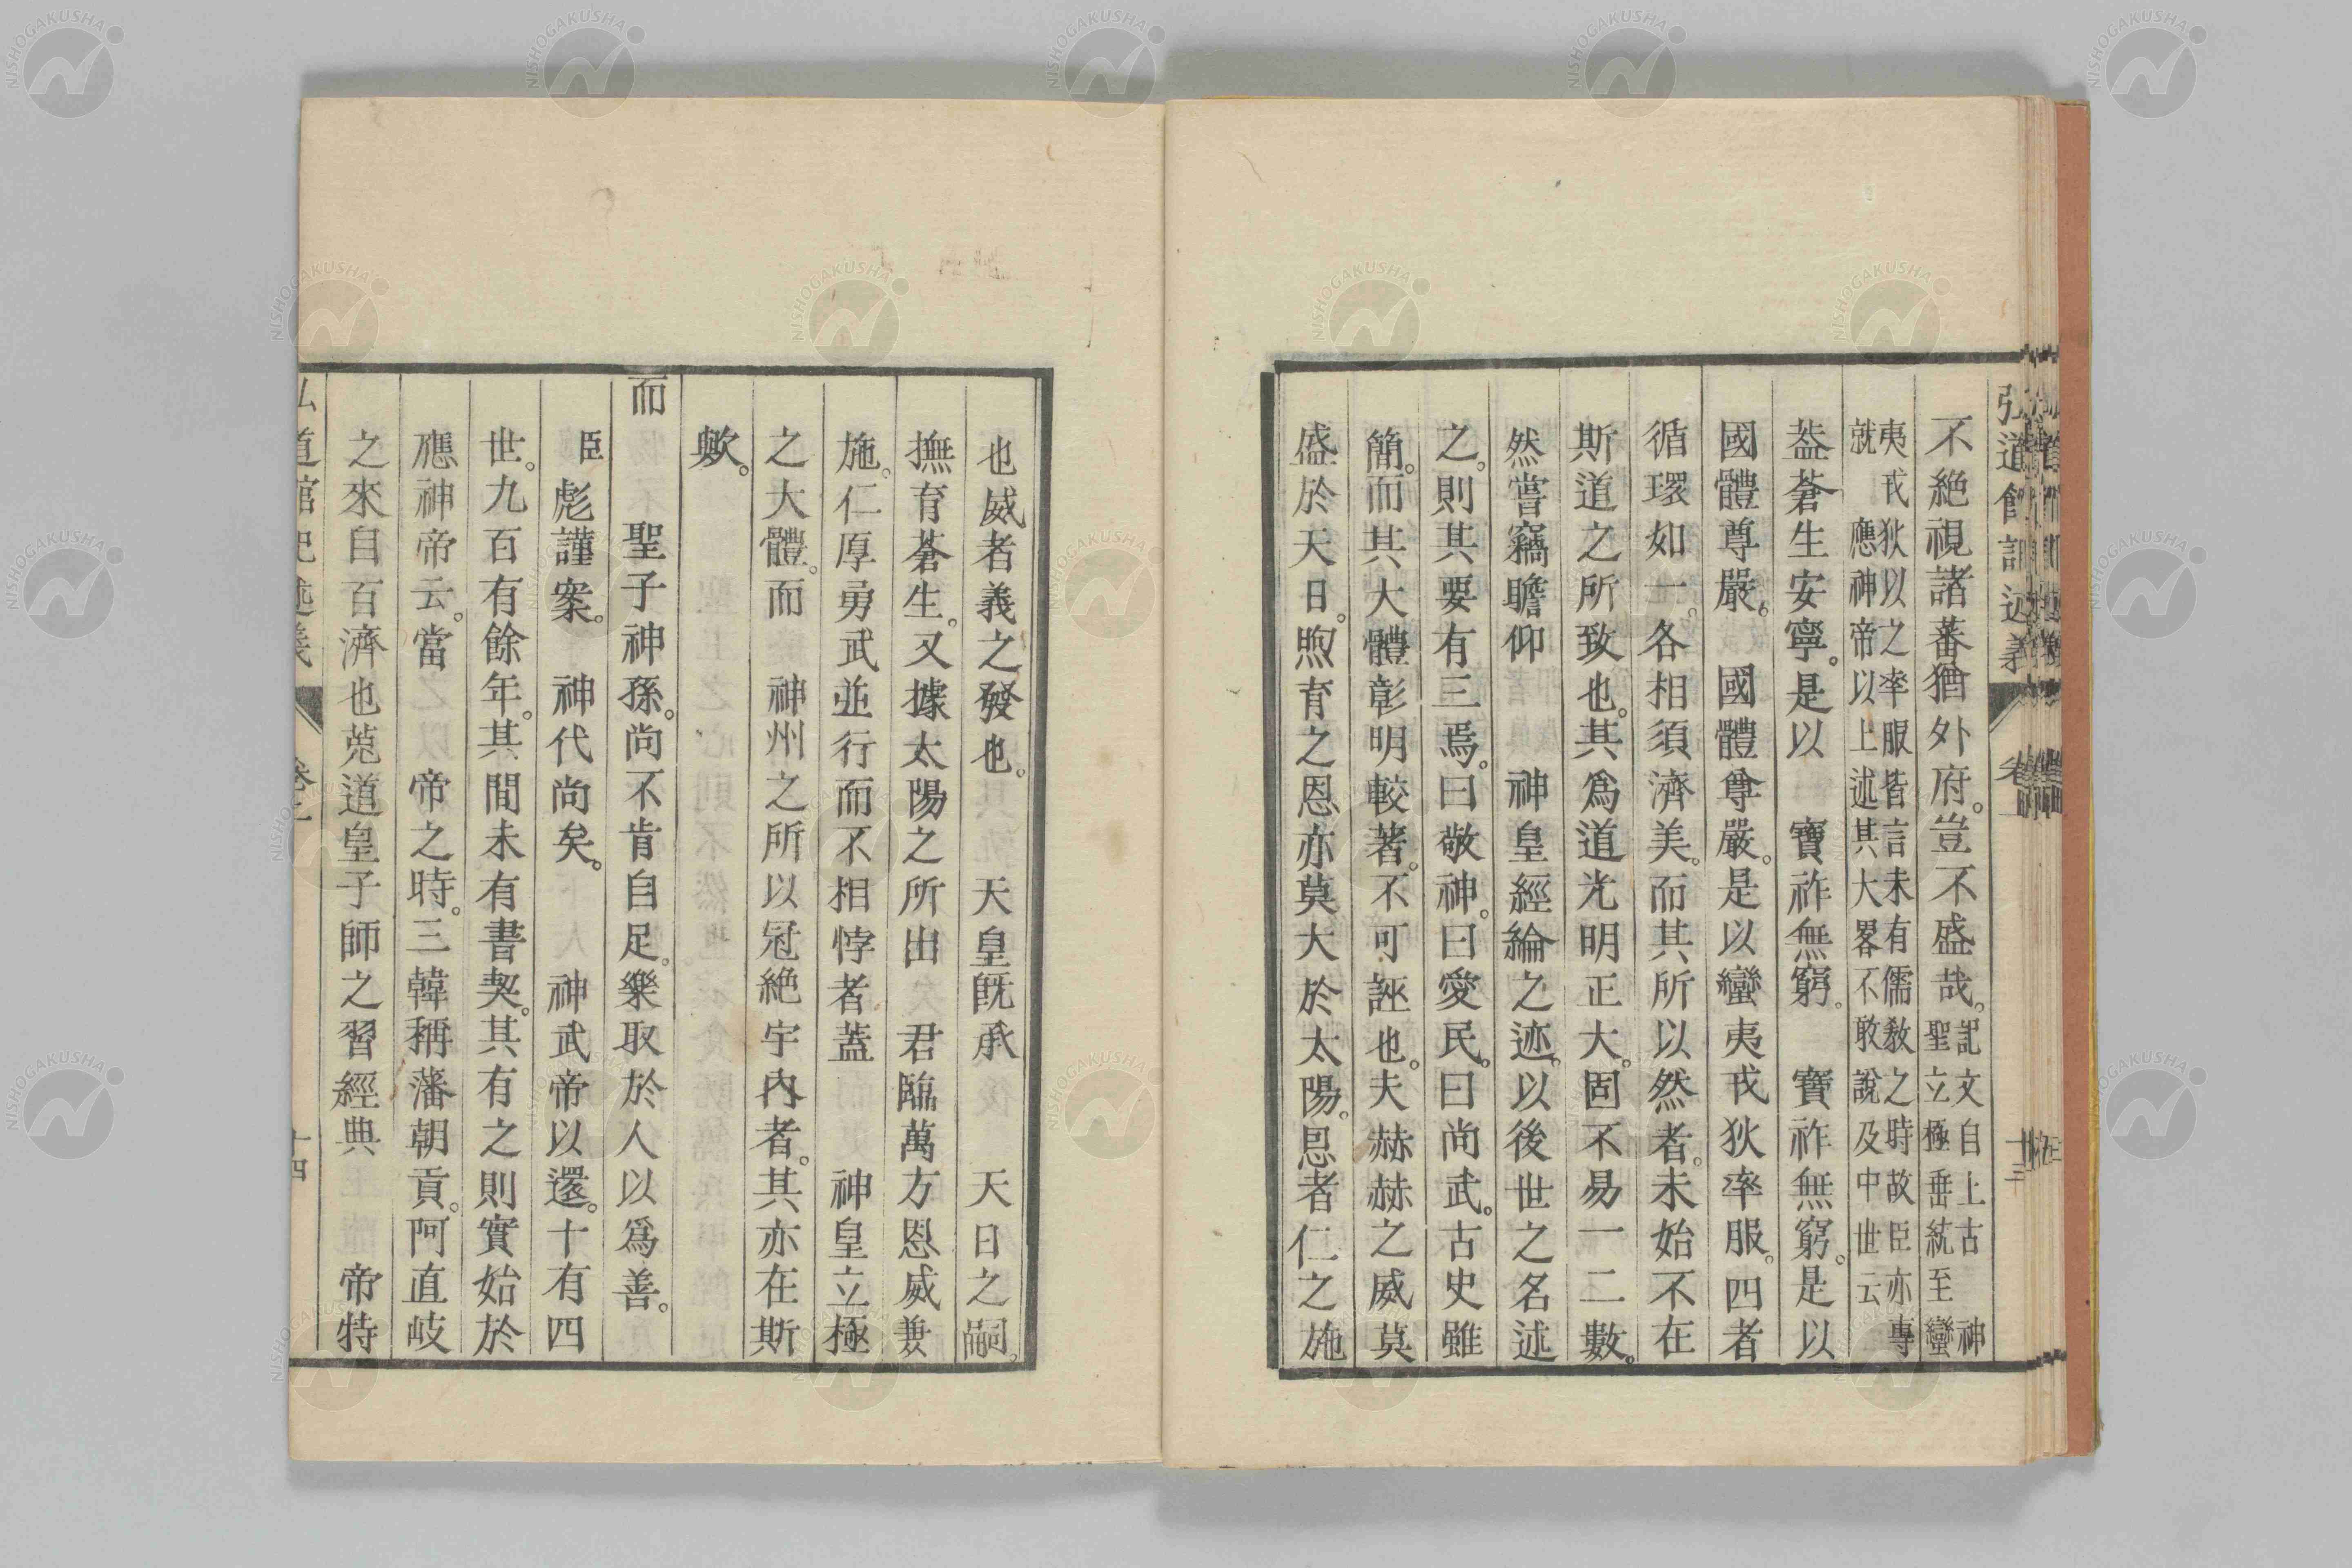 弘道館記述義 卷上 十三
不絶視諸蕃猶外府。豈不盛哉。記文自上古 神
聖立極垂統至蠻
夷戎狄以之率服皆言未有儒教之時故臣亦專
就 應神帝以上述其大畧不敢説及中世云
葢蒼生安寧。是以 寶祚無窮。 寶祚無窮。是以
國體尊嚴。 國體尊嚴。是以蠻夷戎狄率服。四者
循環如一。各相須濟美。而其所以然者。未始不在
斯道之所致也。其爲道光明正大。固不易一二數。
然嘗竊瞻仰 神皇經綸之迹。以後世之名述
之。則其要有三焉。曰敬神。曰愛民。曰尚武。古史雖
簡。而其大體彰明較著。不可誣也。夫赫赫之威莫
盛於天日。煦育之恩亦莫大於太陽。恩者仁之施
也威者義之發也。 天皇既承 天日之嗣。
撫育蒼生。又據太陽之所出 君臨萬方恩威兼
施。仁厚勇武並行而不相悖者蓋 神皇立極
之大體。而 神州之所以冠絶宇内者。其亦在斯
歟。
而 聖子神孫。尚不肯自足。樂取於人以爲善。
臣彪謹案。 神代尚矣。 神武帝以還。十有四
世。九百有餘年。其間未有書契。其有之則實始於
應神帝云。當 帝之時。三韓稱藩朝貢。阿直岐
之來自百濟也菟道皇子師之習經典 帝特
弘道館記述義 卷上 十四
NISHOGAKUSHA